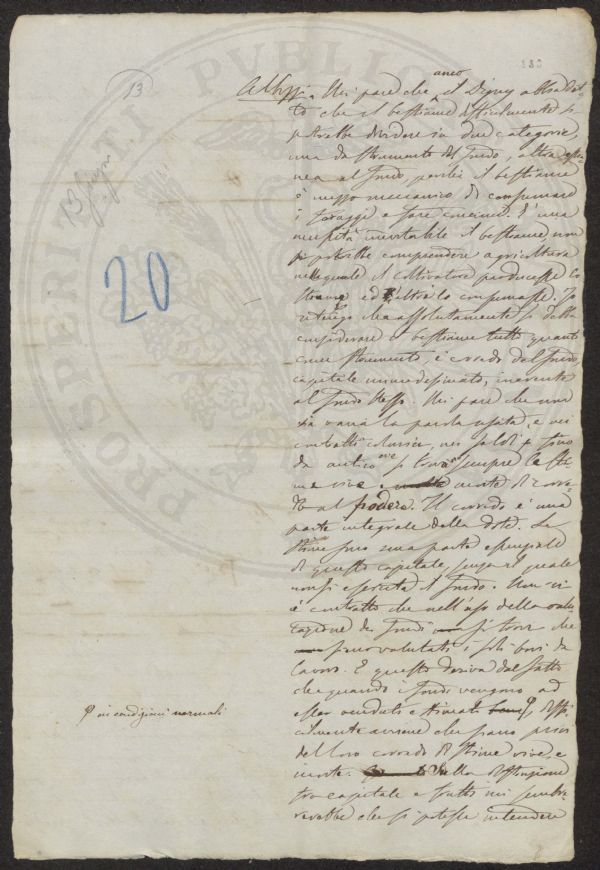 132
13
13 giugno
20
Alberti. Mi pare che anco il Digny abbia det
to che il bestiame difficilmente si
potrebbe dividere in due categorie,
una da strumento del fondo, altra estra
nea al fondo, perchè il bestiame
è mezzo meccanico di consumare
i foraggi e fare concimi. È una
necessità inevitabile il bestiame non
si potrebbe comprendere agricoltura
nella quale il coltivatore producesse
ed altra lo consumasse. Io
ritengo che assolutamente si debba
considerare il bestiame tutto quanto
come strumento, è corredo del fondo,
capitale immedesimato, inerente
al fondo stesso. Mi pare che non
sia vana la parola usata, e nei
contratti nei saldi si trova
da antico si trova sempre le sti
me vive e morte di corre
do al podere. Il corredo è una
parte integrale della dote. Le
stime sono una parte essenziale
di questo capitale, senza il quale
non si esercita il fondo. Non vi
è contratto che nell'uso della valu
tazione dei fondi si trovi che
sieno valutati i soli bovi da
lavoro. E questo deriva dal fatto
che quando i fondi vengono ad
esser venduti e stimati diffi
cilmente avviene che siano privi
del loro corredo di stime vive, e
morte. Nella distinzione
tra capitale e frutti mi sembre-
rebbe che si potesse intendere
in condizioni normali